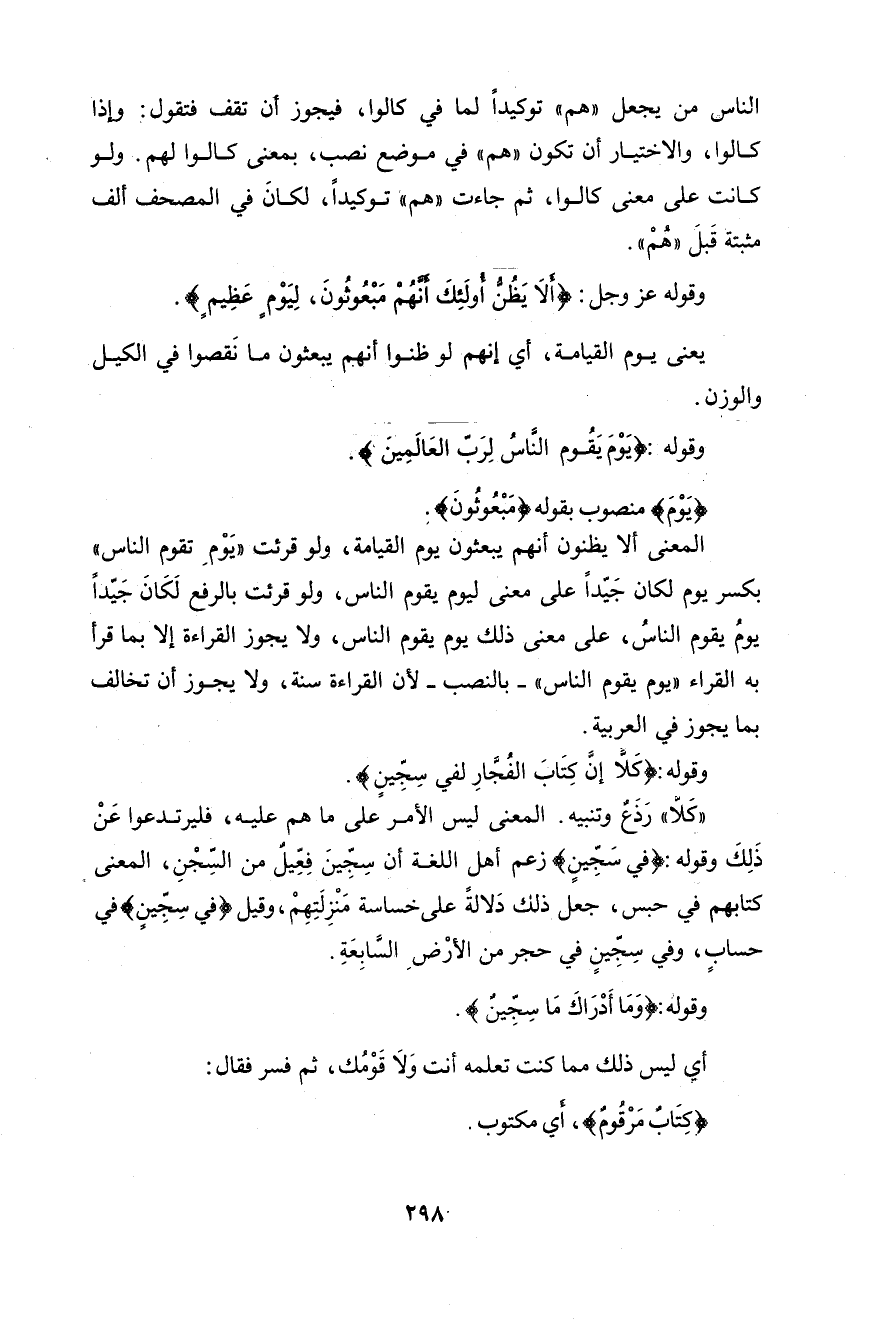 الناس من يجعل «هم» توكيداً لما في كالوا، فيجوز أن تقف فتقول: وإذا
كالوا، والاختيار أن تكون «هم» في موضع نصب، بمعنى كالوا لهم. ولو
كانت على معنى كالوا، ثم جاءت «هم» توكيداً، لكانَ في المصحف ألف
مثبتة قَبلَ «هُمْ».
وقوله عز وجل: ﴿أَلَا يَظُنُّ أُولَئِكَ أَنَّهُمْ مَبْعُوثُونَ، لِيَوْمٍ عَظِيمٍ﴾.
يعنى يوم القيامة، أي إنهم لو ظنوا أنهم يبعثون ما نَقصوا في الكيل
والوزن.
وقوله :﴿يَوْمَ يَقُوم النَّاسُ لِرَبّ العَالَمِينَ﴾.
﴿يَوْمَ﴾ منصوب بقوله ﴿مَبْعُوثُونَ﴾.
المعنى ألا يظنون أنهم يبعثون يوم القيامة، ولو قرئت «يَوْمِ تقوم الناس»
بكسر يوم لكان جَيّداً على معنى ليوم يقوم الناس، ولو قرئت بالرفع لَكَانَ جَيّداً
يومُ يقوم الناسُ، على معنى ذلك يوم يقوم الناس، ولا يجوز القراءة إلا بما قرأ
به القراء «يوم يقوم الناس» ـ بالنصب ـ لأن القراءة سنة، ولا يجوز أن تخالف
بما يجوز في العربية.
وقوله:﴿كَلَّا إنَّ كِتَابَ الفُجَّارِ لفي سِجِّينٍ﴾.
«كَلَّا» رَدَعٌ وتنبيه. المعنى ليس الأمر على ما هم عليه، فليرتدعوا عَنْ
ذَلِكَ وقوله :﴿في سَجِّينٍ﴾ زعم أهل اللغة أن سِجِّينَ فِعِّيلٌ من السِّجْنِ، المعنى
كتابهم في حبس، جعل ذلك دَلالةً على خساسة مَنْزِلَتِهِمْ، وقيل ﴿في سِجِّينٍ﴾ في
حسابٍ، وفي سِجِّينٍ في حجر من الأرْضِ السَّابِعَةِ.
وقوله:﴿وَمَا أَدْرَاكَ مَا سِجِّينٌ﴾.
أي ليس ذلك مما كنت تعلمه أنت وَلَا قَوْمُك، ثم فسر فقال:
﴿كِتَابٌ مَرْقُومٌ﴾، أَي مكتوب.
٢٩٨